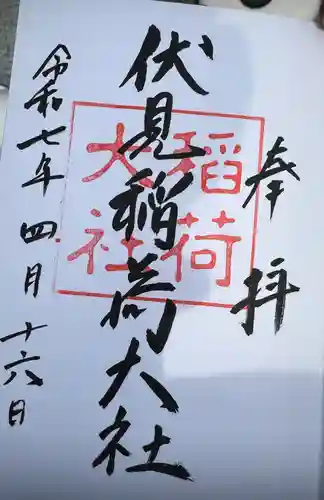 奉拝
伏見稲荷大社
稲荷
大社
令和七年四月十六日